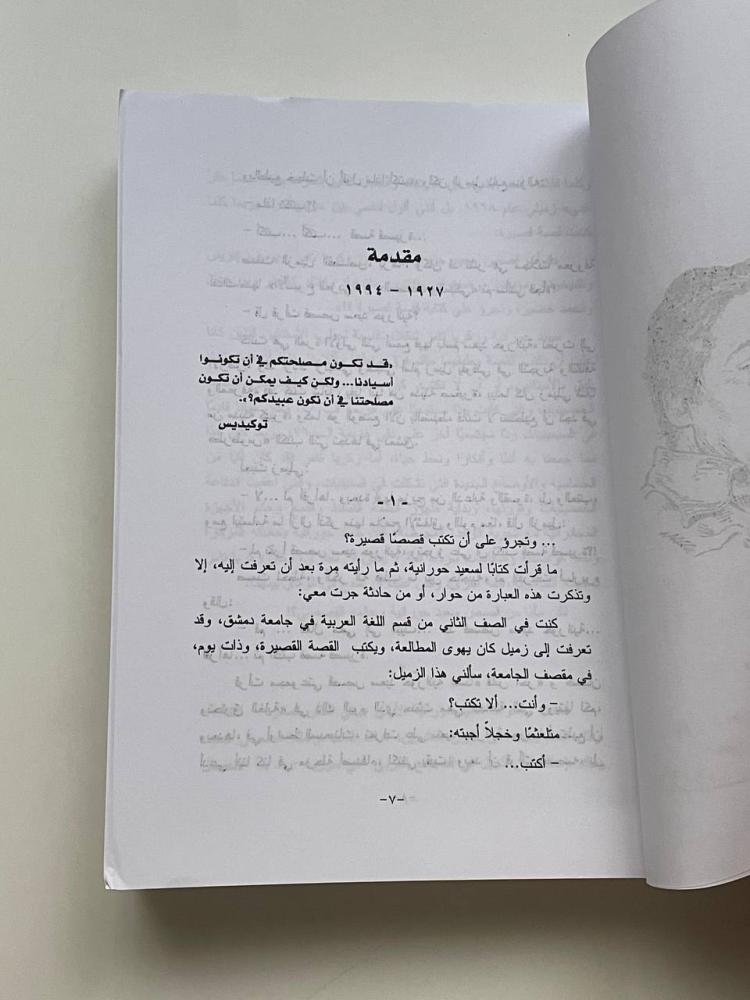 مقدمة
١٩٢٧ - ١٩٩٤
«قد تكون مصلحتكم في أن تكونوا
أسيادنا... ولكن كيف يمكن أن تكون
مصلحتنا في أن نكون عبيدكم؟».
توكيديس
-١-
... وتجرؤ على أن تكتب قصصًا قصيرة؟
ما قرأت كتابًا لسعيد حورانية، ثم ما رأيته مرة بعد أن تعرفت إليه، إلا
وتذكرت هذه العبارة من حوار، أو من حادثة جرت معي:
كنت في الصف الثاني من قسم اللغة العربية في جامعة دمشق، وقد
تعرفت إلى زميل كان يهوى المطالعة، ويكتب القصة القصيرة، وذات يوم،
في مقصف الجامعة، سألني هذا الزميل:
- وأنت... ألا تكتب؟
متلعثمًا وخجلاً أجبته:
- أكتب...
-٧-